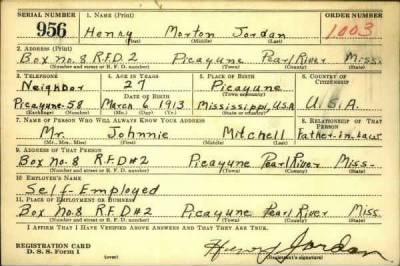 SERIAL NUMBER 1. NAME (Print) ORDER NUMBER
956 Henry Morton Jordan 1003
(First) (Middle) (Last)
2. ADDRESS (Print)
Box No. 8 R.F.D. 2 Picayune Pearl River Miss.
(Number and street or R. F. D. number) (Town) (County) (State)
3. TELEPHONE 4. AGE IN YEARS 5. PLACE OF BIRTH 6. COUNTRY OF CITIZENSHIP
Neighbor 27 Picayune
DATE OF BIRTH (Town or county)
Picayune-58 March 6, 1913 Mississippi, USA U.S.A.
(Exchange) (Number) (Mo.) (Day) (Yr.) (State or country)
7. NAME OF PERSON WHO WILL ALWAYS KNOW YOUR ADDRESS 8. RELATIONSHIP OF THAT PERSON
Mr. Johnnie Mitchell Father-in-Law
(Mr., Mrs., Miss) (First) (Middle) (Last)
9. ADDRESS OF THAT PERSON
Box No. 8 R.F.D #2 Picayune Pearl River Miss-
(Number and street or R. F. D. number) (Town) (County) (State)
10. EMPLOYER'S NAME
Self-Employed
11. PLACE OF EMPLOYMENT OR BUSINESS
Box No. 8 R.F.D #2 Picayune Pearl River Miss.
(Number and street or R. F. D. number) (Town) (County) (State)
I AFFIRM THAT I HAVE VERIFIED ABOVE ANSWERS AND THAT THEY ARE TRUE.
REGISTRATION CARD
D. S. S. Form 1 Henry Jordan
(Registrant's signature)